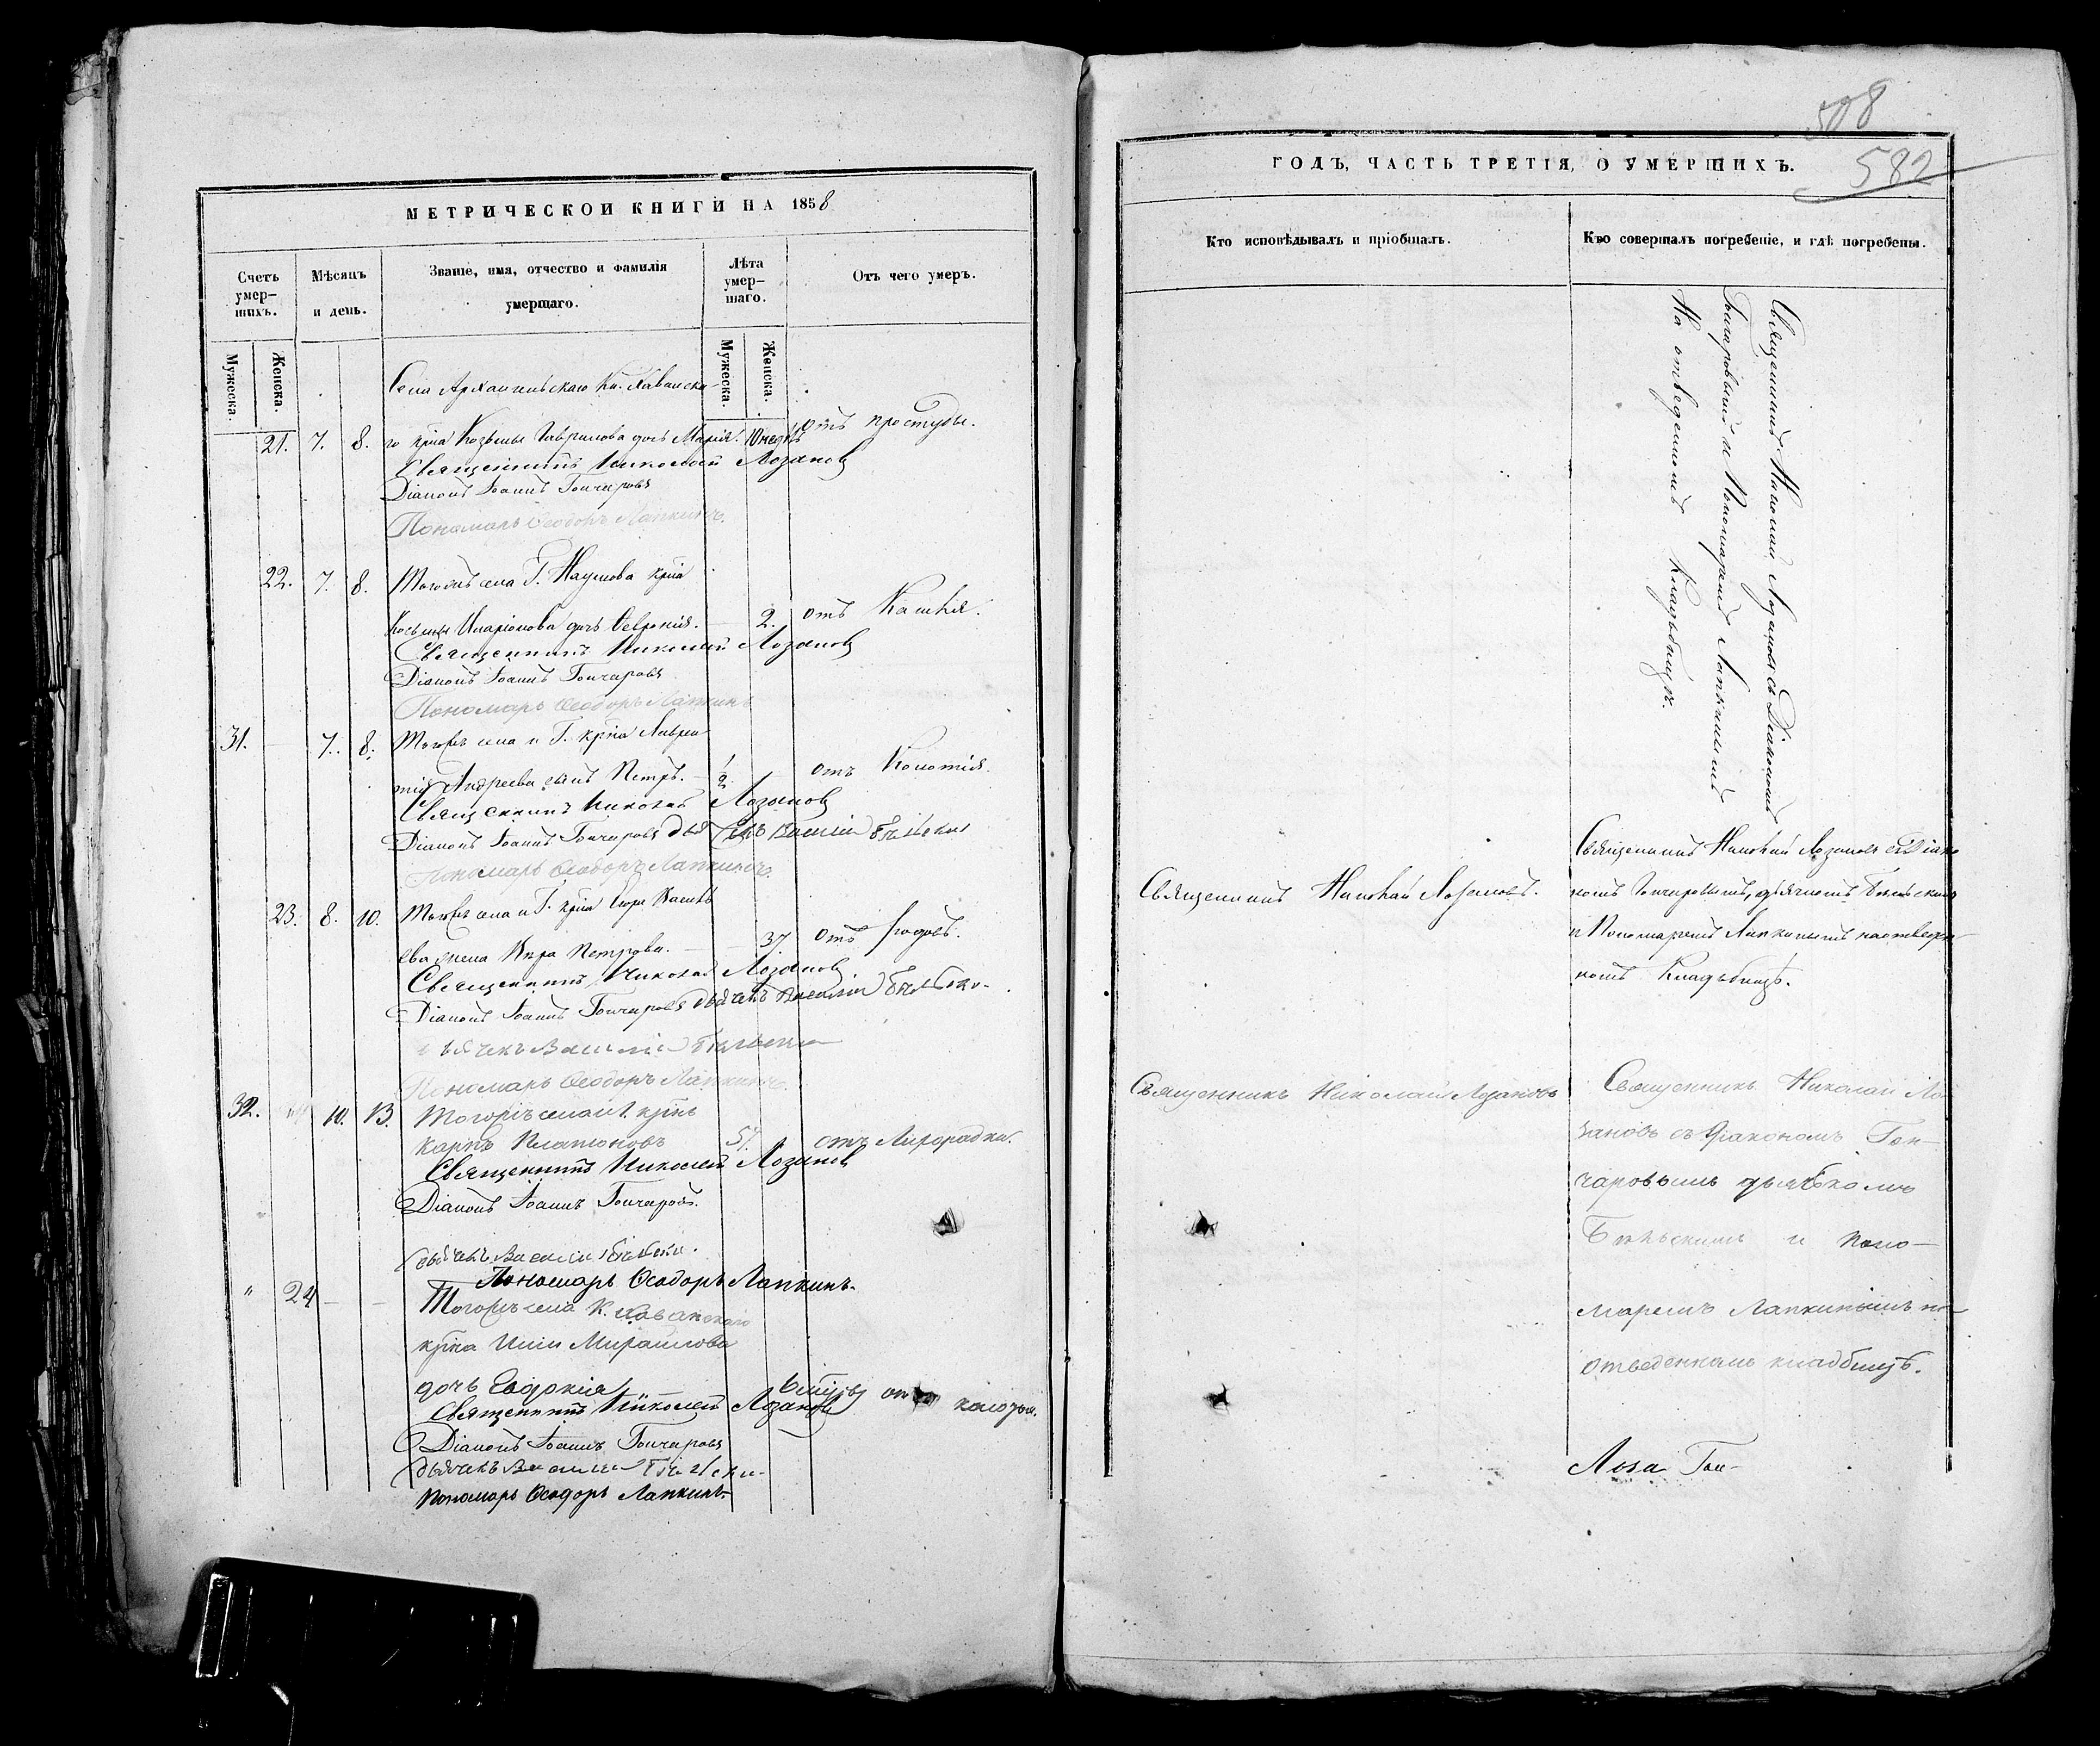 МЕТРИЧЕСКОЙ КНИГИ НА 1858
Счетъ умер-шихъ.
Мѣсяцъ и день.
Званіе, имя, отчество и фамилія умершаго.
Лѣта умер-шаго.
Отъ чего умеръ.
Мужеска.
Женска.
Мужеска.
Женска.
Села Архангельскаго Кн.
21. 7. 8. го крна Козьмы Гаврилова дочь Марія. отъ простуды.
Священникъ Николай Лозановъ
Діаконъ Іоаннъ Гончаровъ
Пономарь Ѳеодоръ Лапкинъ.
22. 7. 8. Тогожъ села Г. Наумова крна
Косьмы Иларіонова дочь Февронія. 2. отъ Кашля.
Священникъ Николай Лозановъ
Діаконъ Іоаннъ Гончаровъ
Пономарь Ѳеодоръ Лапкинъ
31. 7. 8. Тогожъ села и Г. крна Лаврен-
тія Андреева сынъ Петръ. 1/2
Священникъ Николай Лозановъ
Діаконъ Іоаннъ Гончаровъ дьячекъ Василій Бѣльскій
Пономарь Ѳеодоръ Лапкинъ.
23. 8. 10. Тогожъ села и Г. крна Егора Василь
ева жена Кира Петрова. 37 отъ Родовъ.
Священникъ Николай Лозановъ
Діаконъ Іоаннъ Гончаровъ дьячекъ Василій Бѣльскій
дьячекъ Василій Бѣльскій
Пономарь Ѳеодоръ Лапкинъ.
32. 10. 13. Тогожъ села и Г. крнъ
Карпъ Платоновъ 57. отъ Лихорадки.
Священникъ Николай Лозановъ
Діаконъ Іоаннъ Гончаровъ.
дьячекъ Василій Бѣльскій.
Пономарь Ѳеодоръ Лапкинъ.
" 24 — — Тогожъ села К. Хованскаго
крна Ильи Михайлова
дочь Евдокія отъ
Священникъ Николай Лозановъ
Діаконъ Іоаннъ Гончаровъ
дьячекъ Василій Бѣльскій
Пономарь Ѳеодоръ Лапкинъ.
508
582
ГОДЪ, ЧАСТЬ ТРЕТІЯ, О УМЕРШИХЪ.
Кто исповѣдывалъ и пріобщалъ.
Кто совершалъ погребеніе, и гдѣ погребены.
Священникъ Николай Лозановъ съ Діакономъ
Гончаровымъ и Пономаремъ Лапкинымъ
На отведенномъ Кладбищѣ.
Священникъ Николай Лозановъ.
Священникъ Николай Лозановъ съ Діако
номъ Гончаровымъ, дьячкомъ Бѣльскимъ
и Пономаремъ Лапкинымъ на отведен-
номъ Кладьбищѣ.
Священникъ Николай Лозановъ
Священникъ Николай Ло
зановъ съ Діакономъ Гон-
чаровымъ дьячькомъ
Бѣльскимъ и поно-
маремъ Лапкинымъ на
отведенномъ кладбищѣ.
Лоза Гон-